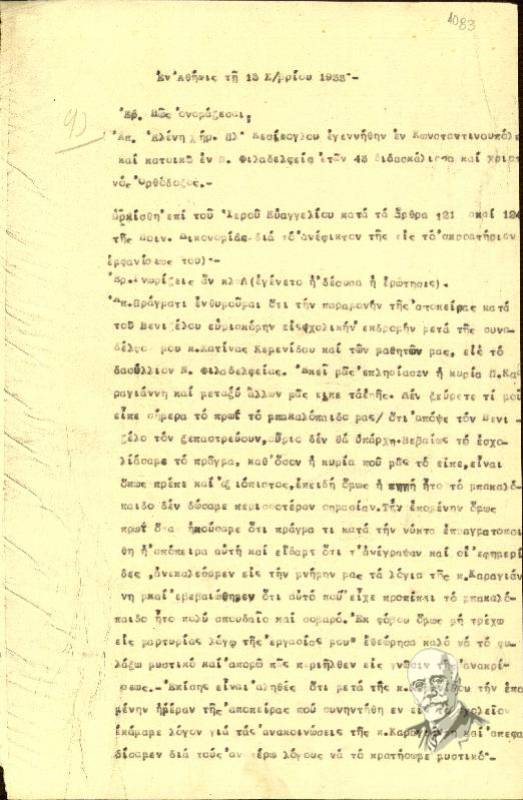 1083
Ἐν Ἀθήναις τῇ 13 Σ/βρίου 1933-
Ἐρ. Πῶς ὀνομάζεσαι;
Ἀπ. Ἑλένη χήρ. Κεσίσογλου ἐγεννήθην ἐν Κωνσταντινουπόλει
καί κατοικῶ ἐν Ν. Φιλαδελφείᾳ ἐτῶν 45 διδασκάλισσα καί χριστια
νός Ὀρθόδοξος.-
Ὡρκίσθη ἐπί τοῦ Ἱεροῦ Εὐαγγελίου κατά τά ἄρθρα 121 καί 124
τῆς Ποιν. Δικονομίας διά τό ἀνέφικτον τῆς εἰς τό ἀκροατήριον
ἐμφανίσεως του)-
Ἐρ. Γνωρίζεις ἄν κλπ (ἐγένετο ἡ δέουσα ἡ ἐρώτησις).
Ἀπ. Πράγματι ἐνθυμοῦμαι ὅτι τήν παραμονήν τῆς ἀποπείρας κατά
τοῦ Βενιζέλου εὑρισκόμην εἰς σχολικήν ἐκδρομήν μετά τῆς συνα
δέλφου μου κ. Κατίνας Κεμενίδου καί τῶν μαθητῶν μας, εἰς τό
δασύλλιον Ν. Φιλαδελφείας. Ἐκεῖ μᾶς ἐπλησίασεν ἡ κυρία Π. Κα
ραγιάννη καί μεταξύ ἄλλων μᾶς εἶπε τά ἑξῆς. Δέν ξεύρετε τί μοῦ
εἶπε σήμερα τό πρωΐ τό μπακαλόπαιδο μας/ ὅτι ἀπόψε τόν Βενι
ζέλο τόν ξεπαστρεύουν, αὔριο δέν θά ὑπάρχῃ. Βεβαίως τό ἐσχο
λιάσαμε τό πράγμα, καθ' ὅσον ἡ κυρία πού μᾶς τό εἶπε, εἶναι
ὅπως πρέπει καί ἀξιόπιστος, ἐπειδή ὅμως ἡ πηγή ἦτο τό μπακαλό-
παιδο δέν δώσαμε περισσοτέραν σημασίαν. Τήν ἐπομένην ὅμως
πρωΐ ἠκούσαμε ὅτι πράγμα τι κατά τήν νύκτα ἐπραγματοποι
θη ἡ ἀπόπειρα αὐτή καί εἴδαμε ὅτι τ' ἀνέγραψαν καί οἱ ἐφημερί
δες, ἀνεκαλέσαμεν εἰς τήν μνήμην μας τά λόγια τῆς κ. Καραγιάν
νη καί ἐβεβαιώθημεν ὅτι αὐτό πού εἶχε προπῖπει τό μπακαλό-
παιδο ἦτο πολύ σπουδαῖο καί σοβαρό. Ἐκ φόβου ὅμως μή τρέχω
εἰς μαρτυρίας λόγῳ τῆς ἐργασίας μου ἐθεώρησα καλό νά τό φυ
λάξω μυστικό καί ἀπορῶ πῶς περιῆλθεν εἰς γνῶσιν ἀνακρί
σεως.- Ἐπίσης εἶναι ἀληθές ὅτι μετά τῆς κ. τήν ἐπο
μένην ἡμέραν τῆς ἀποπείρας πού συνηντήθην ἐν εἰς σχολεῖον
ἐκάμαμε λόγον γιά τάς ἀνακοινώσεις τῆς κ. Καραγιάννη καί ἀπεφα
δίσαμεν διά τούς ἀνωτέρω λόγους νά τό κρατήσωμε μυστικό-